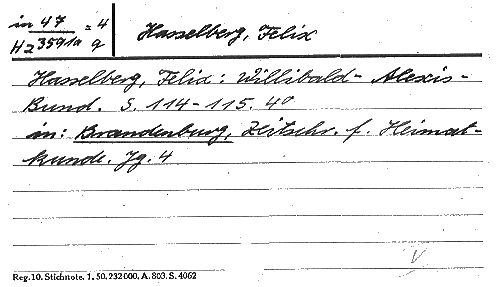 in 47 = 4
Hz 3591a 9
Hasselberg, Felix
Hasselberg, Felix: Willibald-Alexis-
Bund. S. 114-115. 4°
in: Brandenburg, Zeitschr. f. Heimat-
kunde. Jg. 4
V
Reg. 10. Stichnote. 1. 50. 232000. A. 803. S. 4062